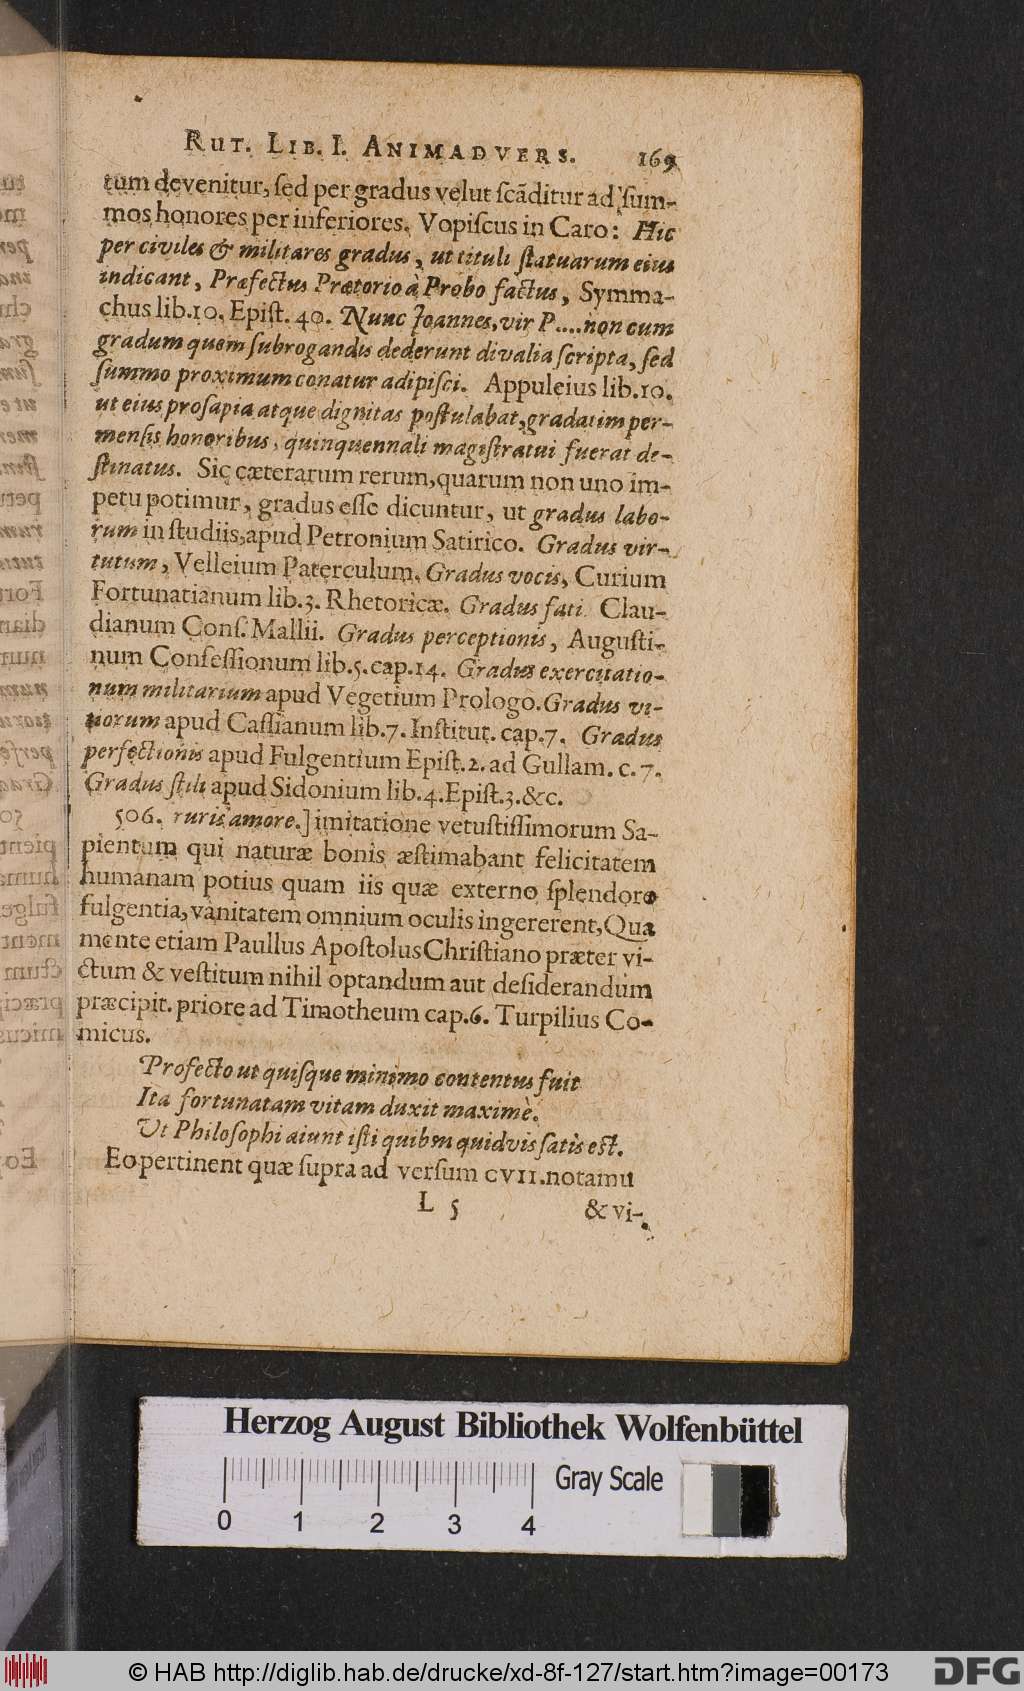 RUT. LIB. I. ANIMADVERS. 169
tum devenitur, ſed per gradus velut ſcãditur ad ſum-
mos honores per inferiores. Vopiſcus in Caro: Hic
per civiles & militares gradus, ut tituli ſtatuarum eius
indicant, Præfectus Prætorio à Probo factus, Symma-
chus lib.10. Epiſt. 40. Nunc Joannes, vir P.... non cum
gradum quem ſubrogandis dederunt divalia ſcripta, ſed
ſummo proximum conatur adipiſci. Appuleius lib.10.
ut eius proſapia atque dignitas poſtulabat, gradatim per-
menſis honoribus, quinquennali magiſtratui fuerat de-
ſtinatus. Sic cæterarum rerum, quarum non uno im-
petu potimur, gradus eſſe dicuntur, ut gradus labo-
rum in ſtudiis, apud Petronium Satirico. Gradus vir-
tutum, Velleium Paterculum. Gradus vocis, Curium
Fortunatianum lib.3. Rhetoricæ. Gradus fati Clau-
dianum Conſ. Mallii. Gradus perceptionis, Auguſti-
num Confeſſionum lib.5.cap.14. Gradus exercitatio-
num militarium apud Vegetium Prologo. Gradus vi-
tiorum apud Caſſianum lib.7. Inſtitut. cap.7. Gradus
perfectionis apud Fulgentium Epiſt.2. ad Gullam. c.7.
Gradus ſtili apud Sidonium lib.4.Epiſt.3.&c.
506. ruris amore.] imitatione vetuſtiſſimorum Sa-
pientum qui naturæ bonis æſtimabant felicitatem
humanam potius quam iis quæ externo ſplendore
fulgentia, vanitatem omnium oculis ingererent, Qua
mente etiam Paullus Apoſtolus Chriſtiano præter vi-
ctum & veſtitum nihil optandum aut deſiderandum
præcipit. priore ad Timotheum cap.6. Turpilius Co-
micus.
Profecto ut quiſque minimo contentus fuit
Ita fortunatam vitam duxit maximè.
Ut Philoſophi aiunt iſti quibus quidvis ſatis eſt.
Eo pertinent quæ ſupra ad verſum CVII. notamus
L 5 & vi-
Herzog August Bibliothek Wolfenbüttel
Gray Scale
0 1 2 3 4
© HAB http://diglib.hab.de/drucke/xd-8f-127/start.htm?image=00173
DFG